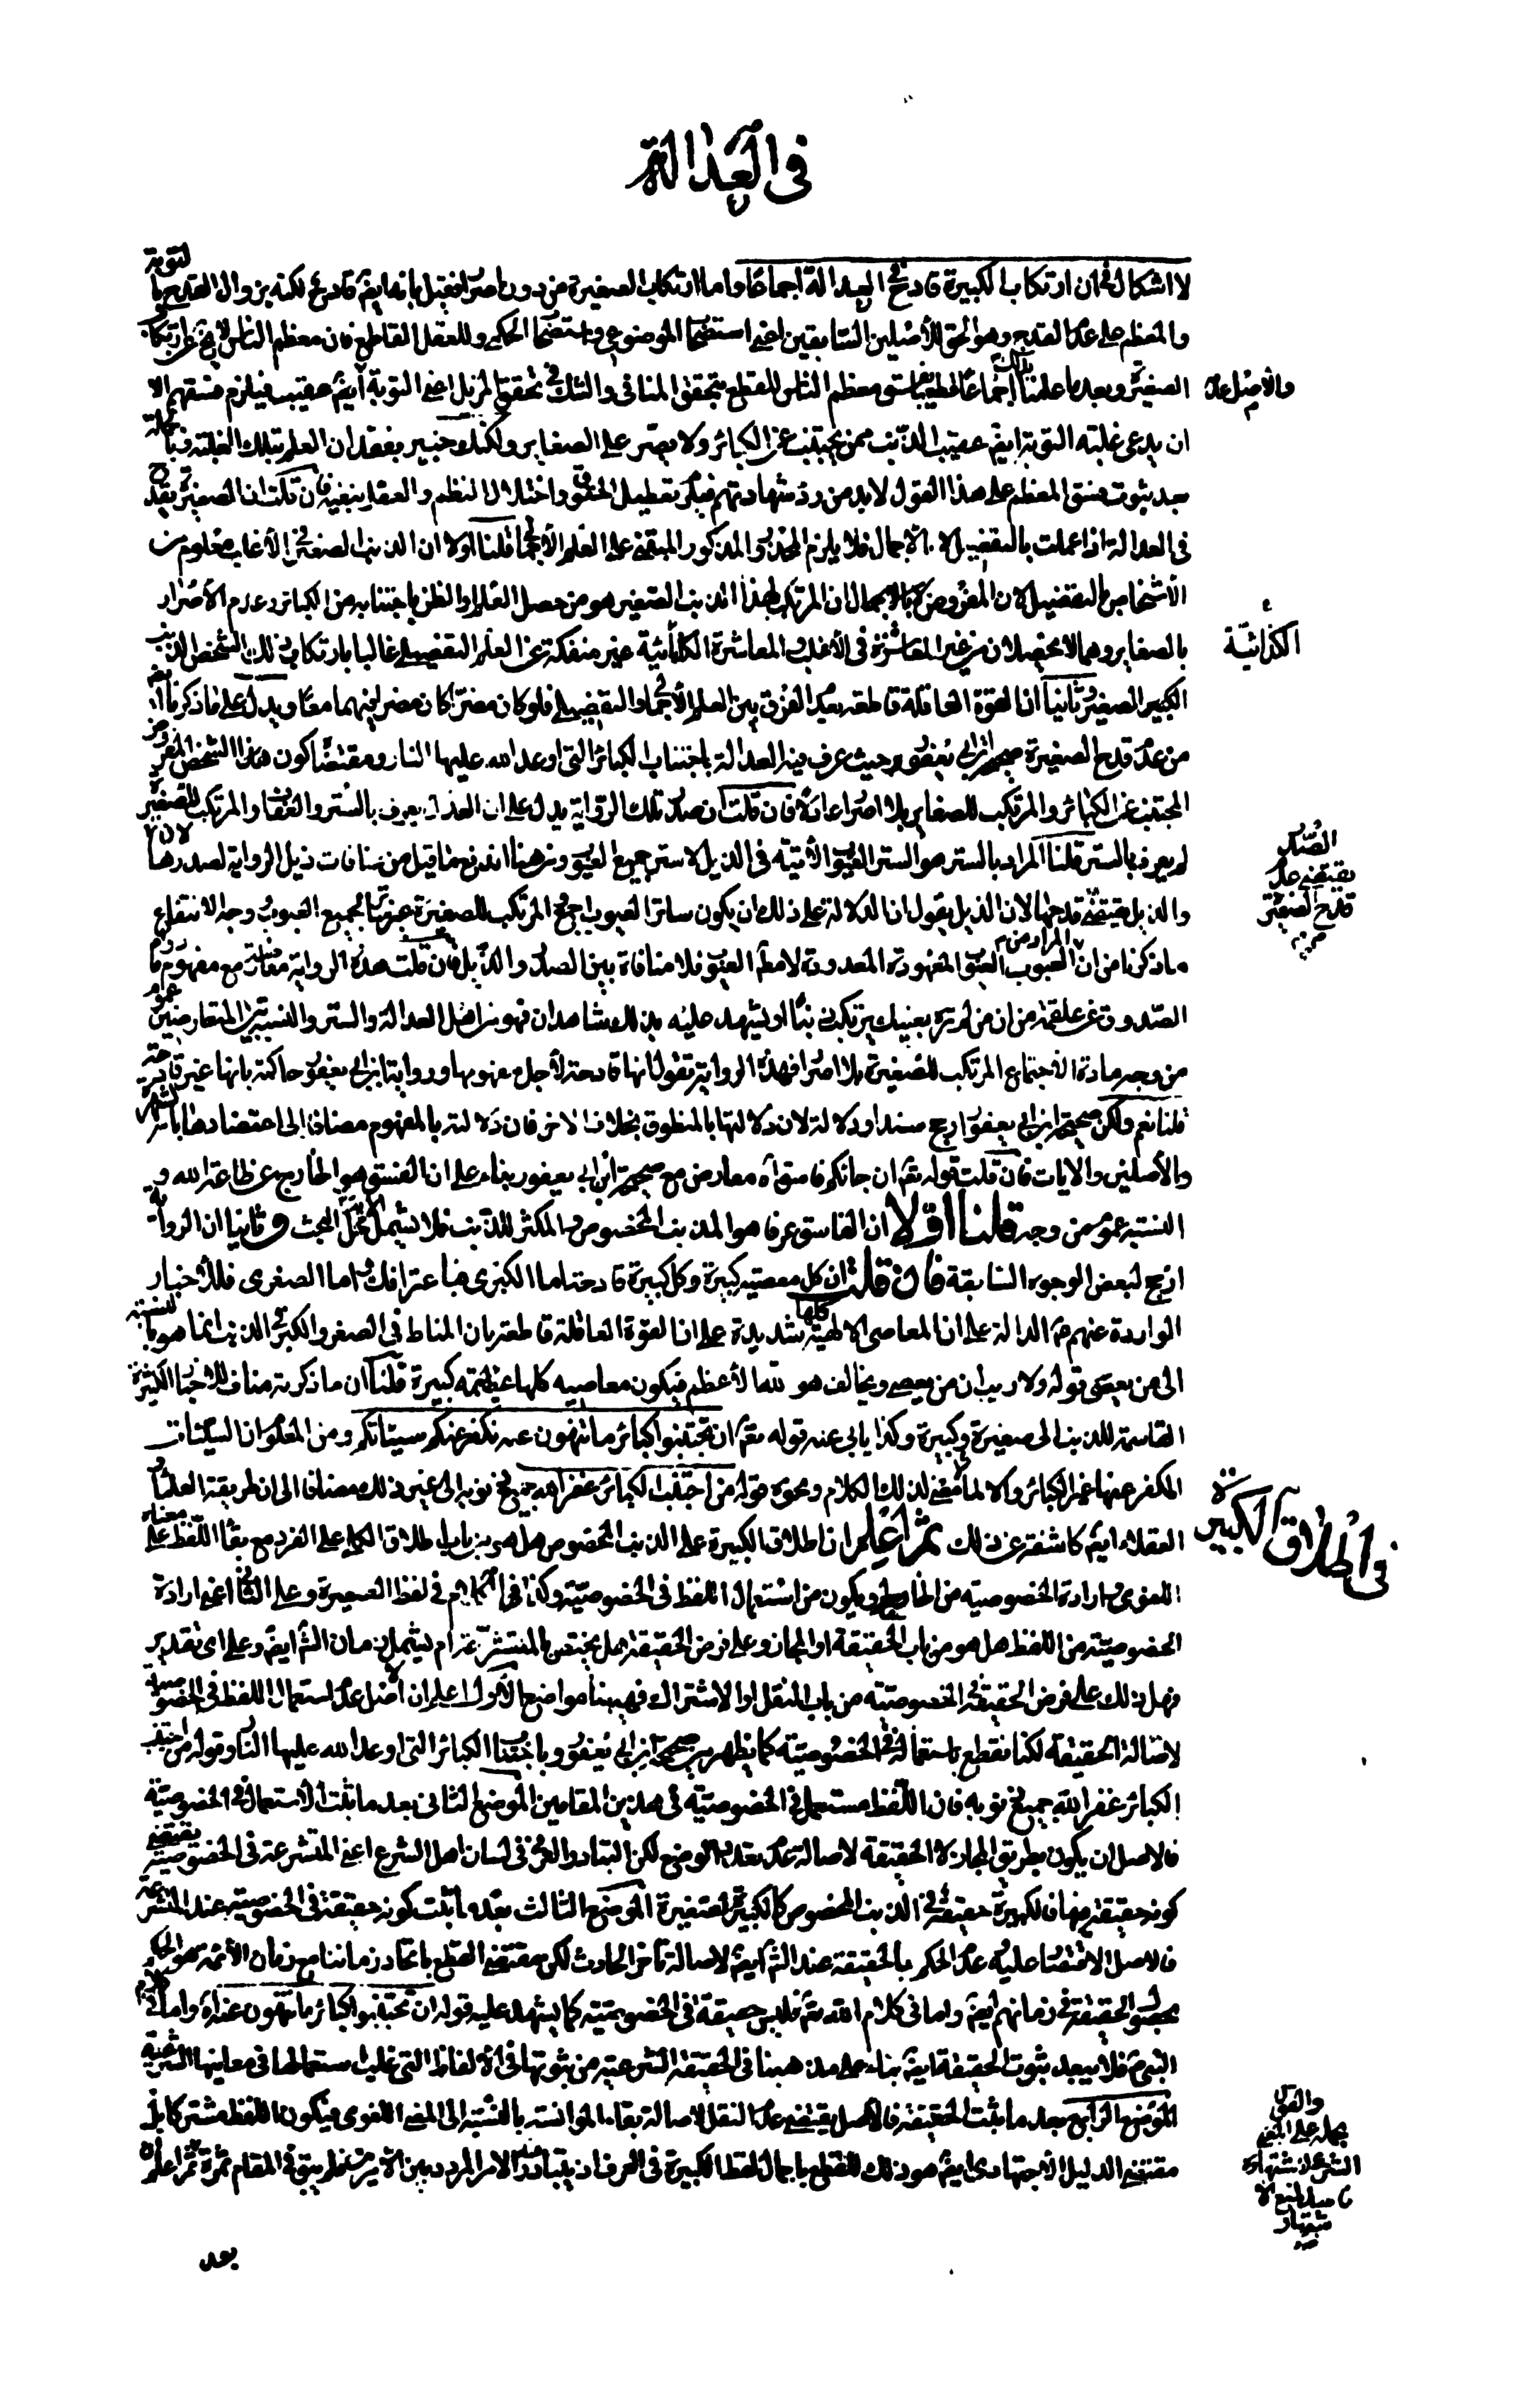 في العدالة
لا اشكال في ان ارتكاب الكبيرة قادح في العدالة اجماعا واما ارتكاب الصغيرة من دون اصرار فقيل بانه ايضً قادح لكنه يزول القدح بالتوبة
والمعظم على عدم القدح وهو الحق للأصلين السابقين اعني استصحاب الموضوعي واستصحاب الحكمي وللعقل القاطع فان معظم الناس لا يخ عن ارتكاب
الصغيرة وبعد ما علمنا بذلك اجماعا قطعنا بفسق معظم الناس للقطع بتحقق المنافي والشك في تحقق المزيل اعني التوبة ايضً عقيبه فيلزم فسقهم الا
والأصل عدمه
ان يدعى غلبة التوبة ايضً عقيب الذنب ممن يجتنب عن الكبائر ولا يصر على الصغاير ولكنك خبير بفقدان العلم بتلك الغلبة وبالجملة
بعد ثبوت فسق المعظم على هذا القول لابد من رد شهادتهم فيكثر تعطيل الحقوق واختلال النظم والعقل ينفيه فان قلت ان الصغيرة يقدح
في العدالة اذا علمت بالتفصيل لا بالاجمال فلا يلزم المحذور المذكور المبتنى على العلم الأجمالي قلنا اولا ان الذنب الصغير في الأغلب معلوم من
الأشخاص بالتفصيل لان المفروض بالاجمال ان المرتكب لهذا الذنب الصغير هو من حصل العلم او الظن باجتنابه من الكبائر وعدم الأصرار
بالصغاير وهما لا يحصلان من غير المعاشرة في الأغلب والمعاشرة الكذائية غير منفكة عن العلم التفصيلي غالبا بارتكاب ذلك الشخص الذنب
الكذائية
الكبير الصغير وثانيا ان القوة العاقلة قاطعة بعدم الفرق بين العلم الأجمالي والتفصيلي فلو كان مضرا كان مضرا فيهما معا ويدل على ما ذكرنا ايضً
من عدم قدح الصغيرة صحيحة ابن ابي يعفور حيث عرف فيه العدالة باجتناب الكبائر التي اوعد الله عليها النار ومقتضاه كون هذا الشخص المفروض
المجتنب عن الكبائر والمرتكب للصغاير بلا اصرار عادلا فان قلت ان صدر تلك الرواية يدل على ان العدالة يعرف بالستر والعفاف والمرتكب للصغيرة
لم يعرف بالستر قلنا المراد بالستر هو الستر العيوب الأتية في الذيل لا ستر جميع العيوب ومن هنا اندفع ما قيل من منافات ذيل الرواية لصدرها لان
الصدر
يقتضي عدم
قدح الصغيرة
والذيل يقتضي قدحها لان الذيل يقول ان الدلالة على ذلك ان يكون ساترا لعيوبه اجمع والمرتكب للصغيرة غير ساتر لجميع العيوب وجه الاندفاع
ما ذكرنا من ان المراد من العيوب العيوب المعهودة المعدودة لا مطلق العيوب فلا منافاة بين الصدر والذيل فان قلت هذه الرواية معارضة مع مفهوم ما رواه
الصدوق عن علقمة من ان من لم تره بعينيك يرتكب ذنبا او يشهد عليه بذلك شاهدان فهو من اهل العدالة والستر والنسبة بين المتعارضين عموم
من وجه مادة الاجتماع المرتكب للصغيرة بلا اصرار فهذه الرواية تقول انها قادحة لأجل مفهومها ورواية ابن ابي يعفور حاكمة بانها غير قادحة
قلنا نعم ولكن صحيحة ابن ابي يعفور ارجح سندا ودلالة لان دلالتها بالمنطوق بخلاف الاخر فان دلالته بالمفهوم مضافا الى اعتضادها بالشهرة
والأصلين والايات فان قلت قوله تعً ان جائكم فاسق آه معارض مع صحيحة ابن ابي يعفور بناء على ان الفسق هو الخارج عن طاعة الله و
النسبة عموم من وجه قلنا اولا ان الفاسق عرفا هو المذنب المخصوص والمكثر للذنب فلا يشمل الاية محل البحث وثانيا ان الرواية
ارجح لبعض الوجوه السابقة فان قلت ان كل معصية كبيرة وكل كبيرة قادحة اما الكبرى فباعترافك واما الصغرى فللأخبار
الواردة عنهم عً الدالة على ان المعاصي الالهية كلها شديدة على ان القوة العاقلة قاطعة بان المناط في الصغر والكبر في الذنب انما هو بالنسبة
الى من يعصى قوله ولا ريب ان من يعصي ويخالف هو الله الأعظم فيكون معاصيه كلها عظيمة كبيرة قلنا ان ما ذكرته مناف للاخبار الكثيرة
القاسمة للذنب الى صغيرة وكبيرة وكذا يابى عنه قوله تعً ان تجتنبوا كبائر ما تنهون عنه نكفر عنكم سيئاتكم ومن المعلوم ان السيئات
المكفر عنها غير الكبائر والا لما معنى لذلك الكلام ونحوه قوله من اجتنب الكبائر غفر الله جميع ذنوبه الى غير ذلك مضافا الى ان طريقة العلماء و
العقلاء ايضً كاشفة عن ذلك ثم اعلم ان اطلاق الكبيرة على الذنب المخصوص هل هو من باب اطلاق الكلي على الفرد مع بقاء اللفظ على معناه
في اطلاق الكبيرة
اللغوي وارادة الخصوصية من الخارج او يكون من استعمال اللفظ في الخصوصية وكذا في الكلام في لفظ الصغيرة وعلى الثاني اعني ارادة
الخصوصية من اللفظ هل هو من باب الحقيقة او المجاز وعلى فرض الحقيقة هل يختص بالمتشرعة ام يشمل زمان الشم ايضً وعلى اي تقدير
فهل ذلك على فرض الحقيقة في الخصوصية من باب النقل او الاشتراك فهيهنا مواضع الأول اعلم ان الاصل عدم استعمال اللفظ في الخصوصية
لاصالة الحقيقة لكنا نقطع باستعماله في الخصوصية كما يظهر من صحيحة ابن ابي يعفور وباجتناب الكبائر التي اوعد الله عليها النار وقوله من اجتنب
الكبائر غفر الله جميع ذنوبه فان اللفظ مستعمل في الخصوصية في هذين المقامين الموضع الثاني بعد ما ثبت الاستعمال في الخصوصية
فالاصل ان يكون بطريق المجاز لا الحقيقة لاصالة عدم تعدد الوضع لكن التبادر العرفي في لسان اهل الشرع اعني المتشرعة في الخصوصية يقتضي
كونه حقيقة فيها فالكبيرة حقيقة في الذنب المخصوص كالكبيرة الصغيرة الموضع الثالث بعد ما ثبت كونه حقيقة في الخصوصية عند المتشرعة
فالاصل الاقتصار عليه وعدم الحكم بالحقيقة عند الشم ايضً لاصالة تأخر الحادث لكن مقتضى القطع باتحاد زماننا مع زمان الأئمة هو الحكم
بحصول الحقيقة في زمانهم ايضً واما في كلام الله تعً فليس حقيقة في الخصوصية كما يشهد عليه قوله ان تجتنبوا كبائر ما تنهون عنه آه واما في كلام
النبي ص فلا يبعد ثبوت الحقيقة ايضً بناء على مذهبنا في الحقيقة الشرعية من ثبوتها في الألفاظ التي غلب استعمالها في معانيها الشرعية
الموضع الرابع بعد ما ثبت الحقيقة فالأصل يقتضي عدم النقل لاصالة بقاء الموانسة بالنسبة الى المعنى اللغوي فيكون اللفظ مشتركا بل
والقول
بحمله على المعنى
الشرعي لاشتهاره
فاسد لمنع الا
شتهار
مقتضى الدليل الأجتهادي ايضً هو ذلك للقطع باجمال لفظ الكبيرة في العرف اذ يتبادر منه الامر المردد بين الامرين فلم يبق في المقام ثمرة ثم اعلم ان
بعد